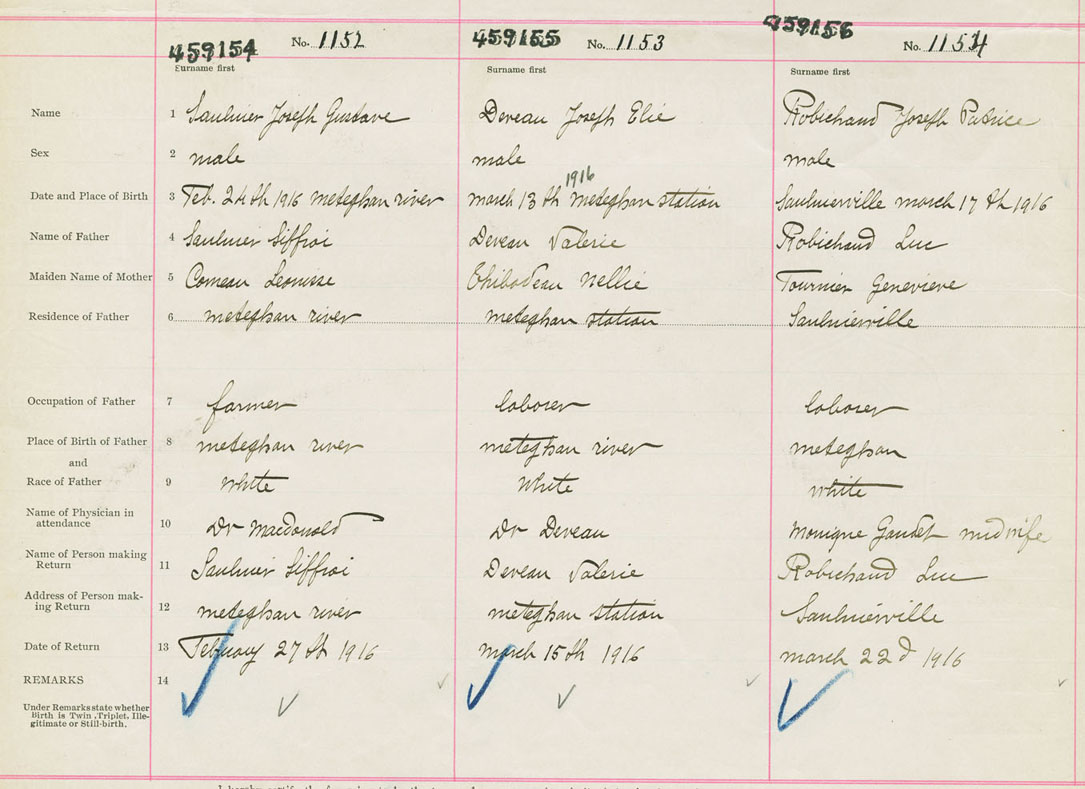 459154 No. 1152 459155 No. 1153 459156 No. 1154
Surname first Surname first Surname first
Name 1 Saulnier Joseph Gustave Deveau Joseph Elie Robichaud Joseph Patrice
Sex 2 male male male
1916
Date and Place of Birth 3 Feb. 24th 1916 meteghan river march 13th meteghan station Saulnierville march 17th 1916
Name of Father 4 Saulnier Siffroi Deveau Valerie Robichaud Luc
Maiden Name of Mother 5 Comeau Leonisse Thibodeau Nellie Fournier Genevieve
Residence of Father 6 meteghan river meteghan station Saulnierville
Occupation of Father 7 farmer laborer laborer
Place of Birth of Father 8 meteghan river meteghan river meteghan
and
Race of Father 9 white White white
Name of Physician in
attendance 10 Dr Macdonald Dr Deveau monique Gaudet midwife
Name of Person making
Return 11 Saulnier Siffroi Deveau Valerie Robichaud Luc
Address of Person mak-
ing Return 12 meteghan river meteghan station Saulnierville
Date of Return 13 February 27th 1916 march 15th 1916 march 22d 1916
REMARKS 14
Under Remarks state whether
Birth is Twin, Triplet, Ille-
gitimate or Still-birth.